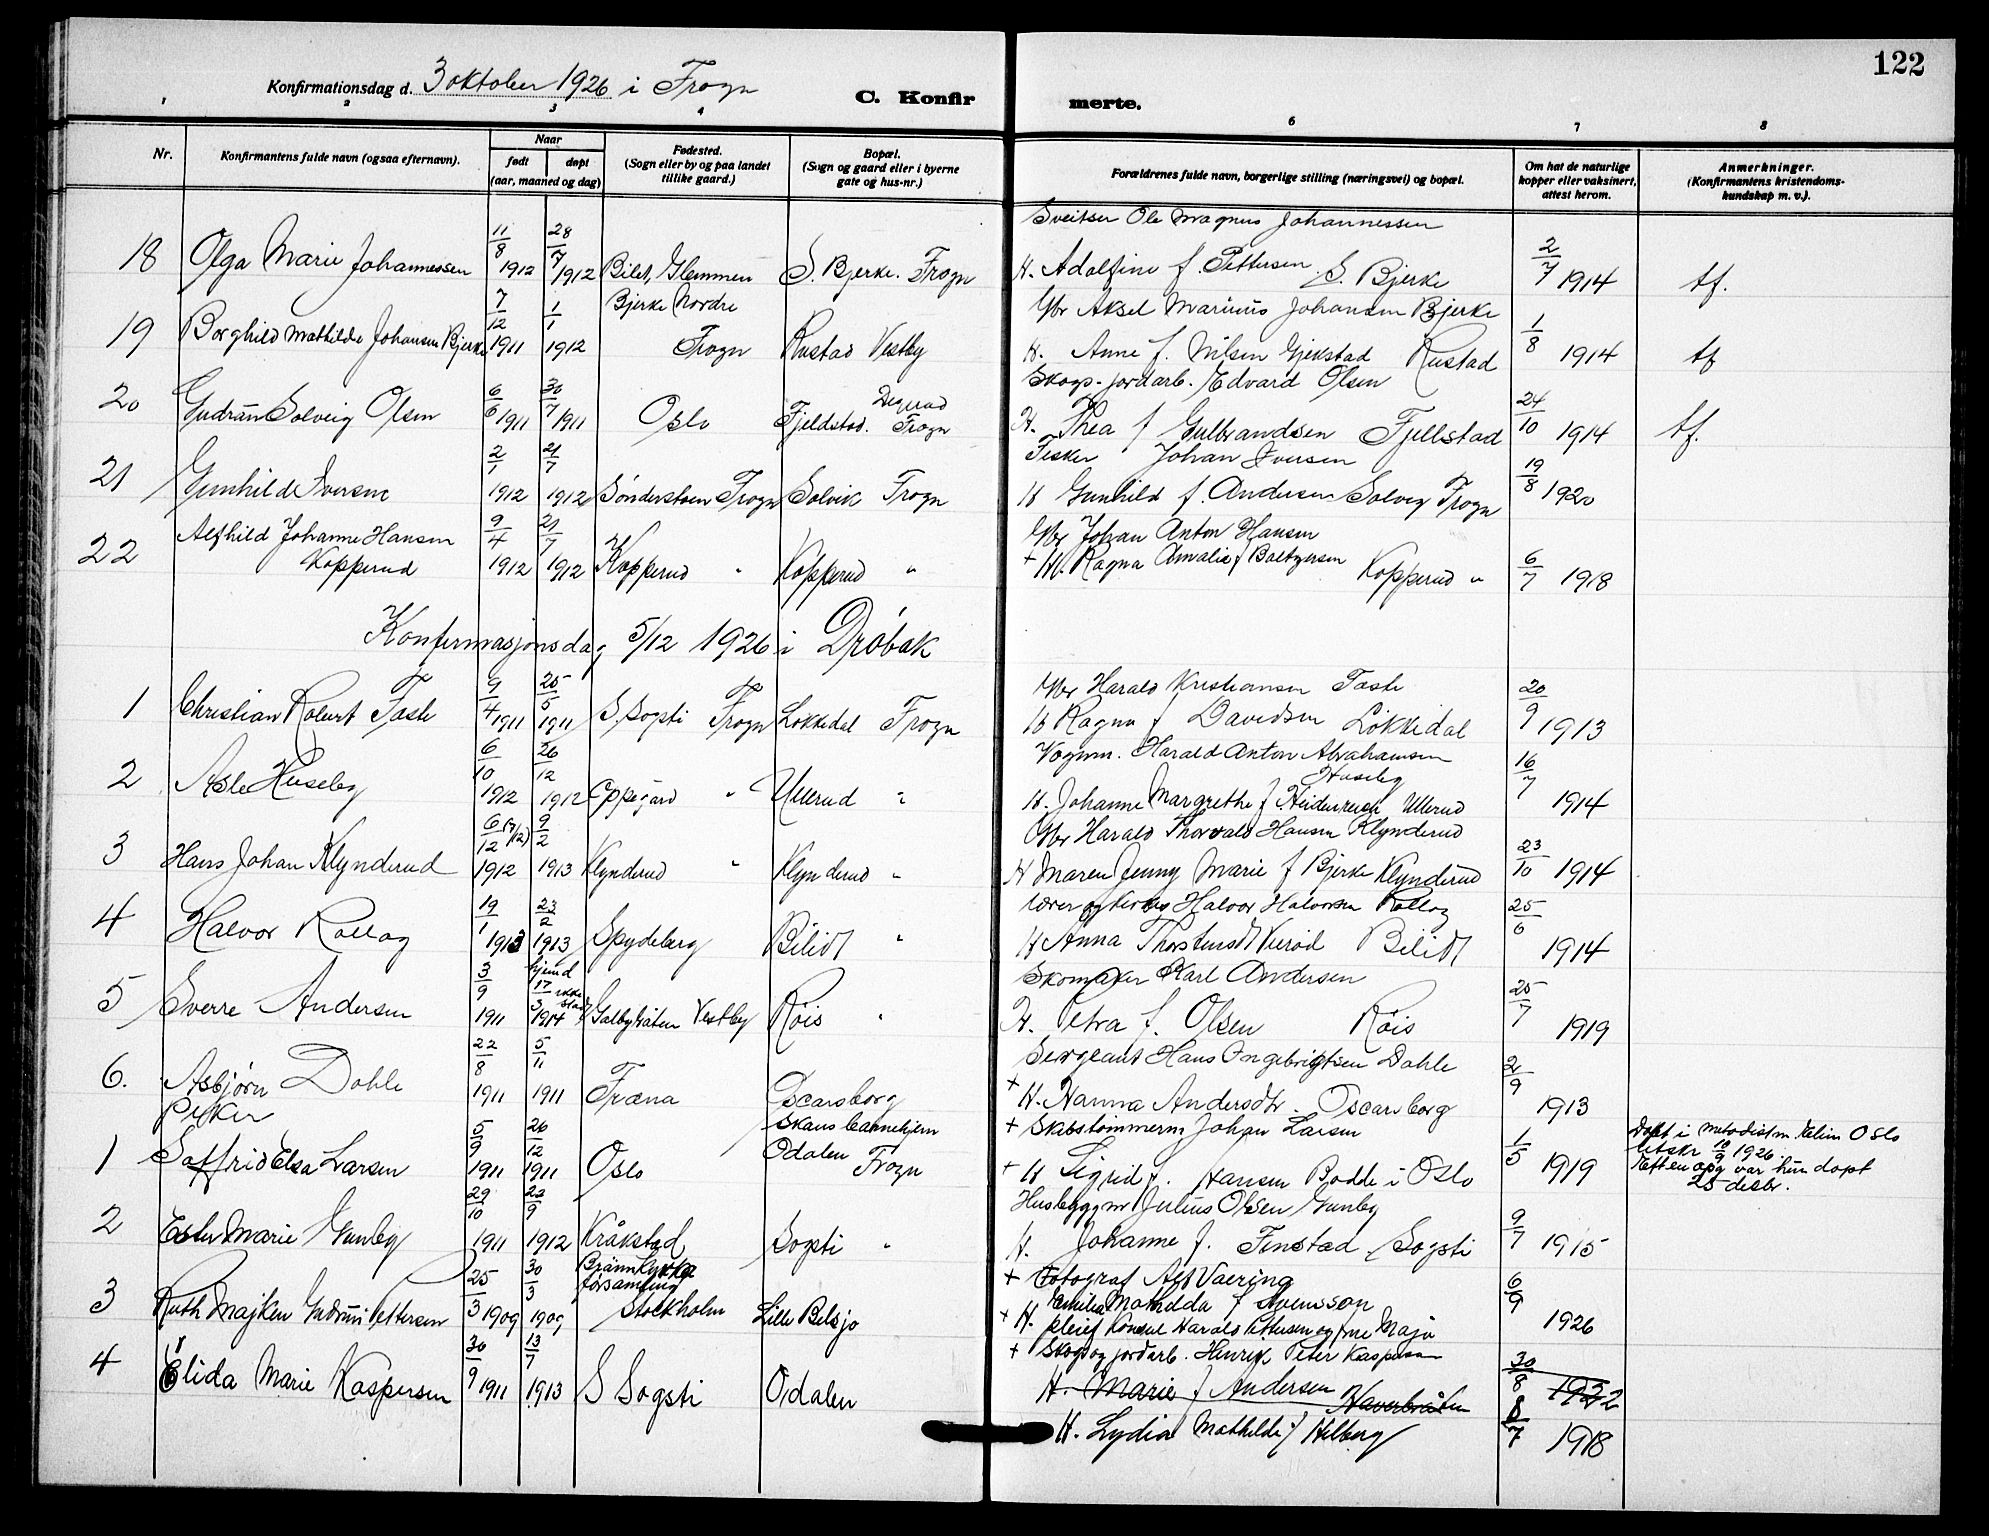 122
Konfirmationsdag d. 3 oktober 1926 i Frogn
C. Konfirmerte.
1 2 3 4 6 7 8
Nr.
Konfirmantens fulde navn (ogsaa efternavn).
Naar
født døpt
(aar, maaned og dag)
Fødested.
(Sogn eller by og paa landet
tillike gaard.)
Bopæl.
(Sogn og gaard eller i byerne
gate og hus-nr.)
Forældrenes fulde navn, borgerlige stilling (næringsvei) og bopæl.
Om hat de naturlige
kopper eller vaksinert,
attest herom.
Anmerkninger.
(Konfirmantens kristendoms-
kundskap m. v.).
Sveitser Ole Magnus Johannessen
18 Olga Marie Johannessen 11/8 1912 28/7 1912 Bilet, Glemmen S. Bjerke. Frogn H. Adolfine f. Pettersen S. Bjerke 2/7 1914 tf.
Gbr Aksel Marius Johansen Bjerke
19 Borghild Mathilde Johansen Bjerke 7/12 1911 1/1 1912 Bjerke Nordre Frogn Rustad Vestby H. Anne f. Nilsen Gjekstad Rustad 1/8 1914 tf
Skogs-jordarb. Edvard Olsen
20 Gudrun Solveig Olsen 6/6 1911 30/7 1911 Oslo Fjeldstad. Degrud Frogn H. Thea f Gulbrandsen Fjellstad 24/10 1914 tf.
Fisker Johan Iversen
21 Gunhilde Iversen 2/1 1912 21/7 1912 Sønderstøen Frogn Solvik Frogn H Gunhild f. Andersen Solveg Frogn 19/8 1920
Gbr Johan Anton Hansen
22 Alfhild Johanne Hansen Kopperud 9/4 1912 21/7 1912 Kopperud " Kopperud " + H. Ragna Amalie f Baltzersen Kopperud " 6/7 1918
Konfirmasjonsdag 5/12 1926 i Drøbak
Gbr Harald Kristiansen Toste
1 Christian Robert Toste 9/4 1911 25/5 1911 S. Sogsti Frogn Løkkedal Frogn H Ragna f Davidsen Løkkedal 20/9 1913
Vognm. Harald Anton Abrahamsen Huseby
2 Asle Huseby 6/10 1912 26/12 1912 Oppegård " Ullerud " H. Johanne Margrethe f Heidenreich Ullerud 16/7 1914
Gbr Harald Thorvald Hansen Klynderud
3 Hans Johan Klynderud 6/12 (7/12) 1912 9/2 1913 Klynderud " Klynderud " H Maren Jenny Marie f Bjerke Klynderud 23/10 1914
Lærer og kirkes Halvor Halvorsen Rollag
4 Halvor Rollag 19/1 1913 23/2 1913 Spydeberg Bilidt " H Anna Thorstensdt Vierød Bilidt 25/6 1914
Skomaker Karl Andersen
5 Sverre Andersen 3/9 1911 hjemd 17/3 1914 ikke stadf Galbybråten Vestby Røis " H. Petra f. Olsen Røis 25/7 1919
Sergeant Hans Ingebrigtsen Dahle
6. Asbjørn Dahle 22/8 1911 5/11 1911 Fræna Oscarsborg + H. Hanna Andersdtr. Oscarsborg 2/9 1913
Piker
+ Skibstømmerm Johan Larsen
1 Saffrid Elsa Larsen 5/9 1911 26/12 1911 Oslo Skaus barnehjem Odalen Frogn + H Sigrid f. Hansen Bodde i Oslo 1/5 1919
Døpt i metodistm. Elim Oslo
Utskr 10/9 1926.
Efter opg var hun døpt
25 desbr.
Husbyggmr Julius Olsen Gunby
2 Ester Marie Gunby 29/10 1911 22/9 1912 Kråkstad Sogsti " H. Johanne f. Finstad Sogsti 9/7 1915
+ Fotograf Alf Vaering
3 Ruth Majken Gudrun Pettersen 25/3 1909 30/3 1909 Brännkyrka församling Stockholm Lille Belsjø + H. Emilia Mathilda f Svensson 6/9 1926
pleief Konsul Harald Pettersen og frue Maja
+ Skog og jordarb. Henrik Peter Kaspersen
4 Elida Marie Kaspersen 30/9 1911 13/7 1913 S Sogsti Odalen H. Marie f Andersen Haverbråten 30/8 1922
H. Lydia Mathilde f Helberg 8/7 1918